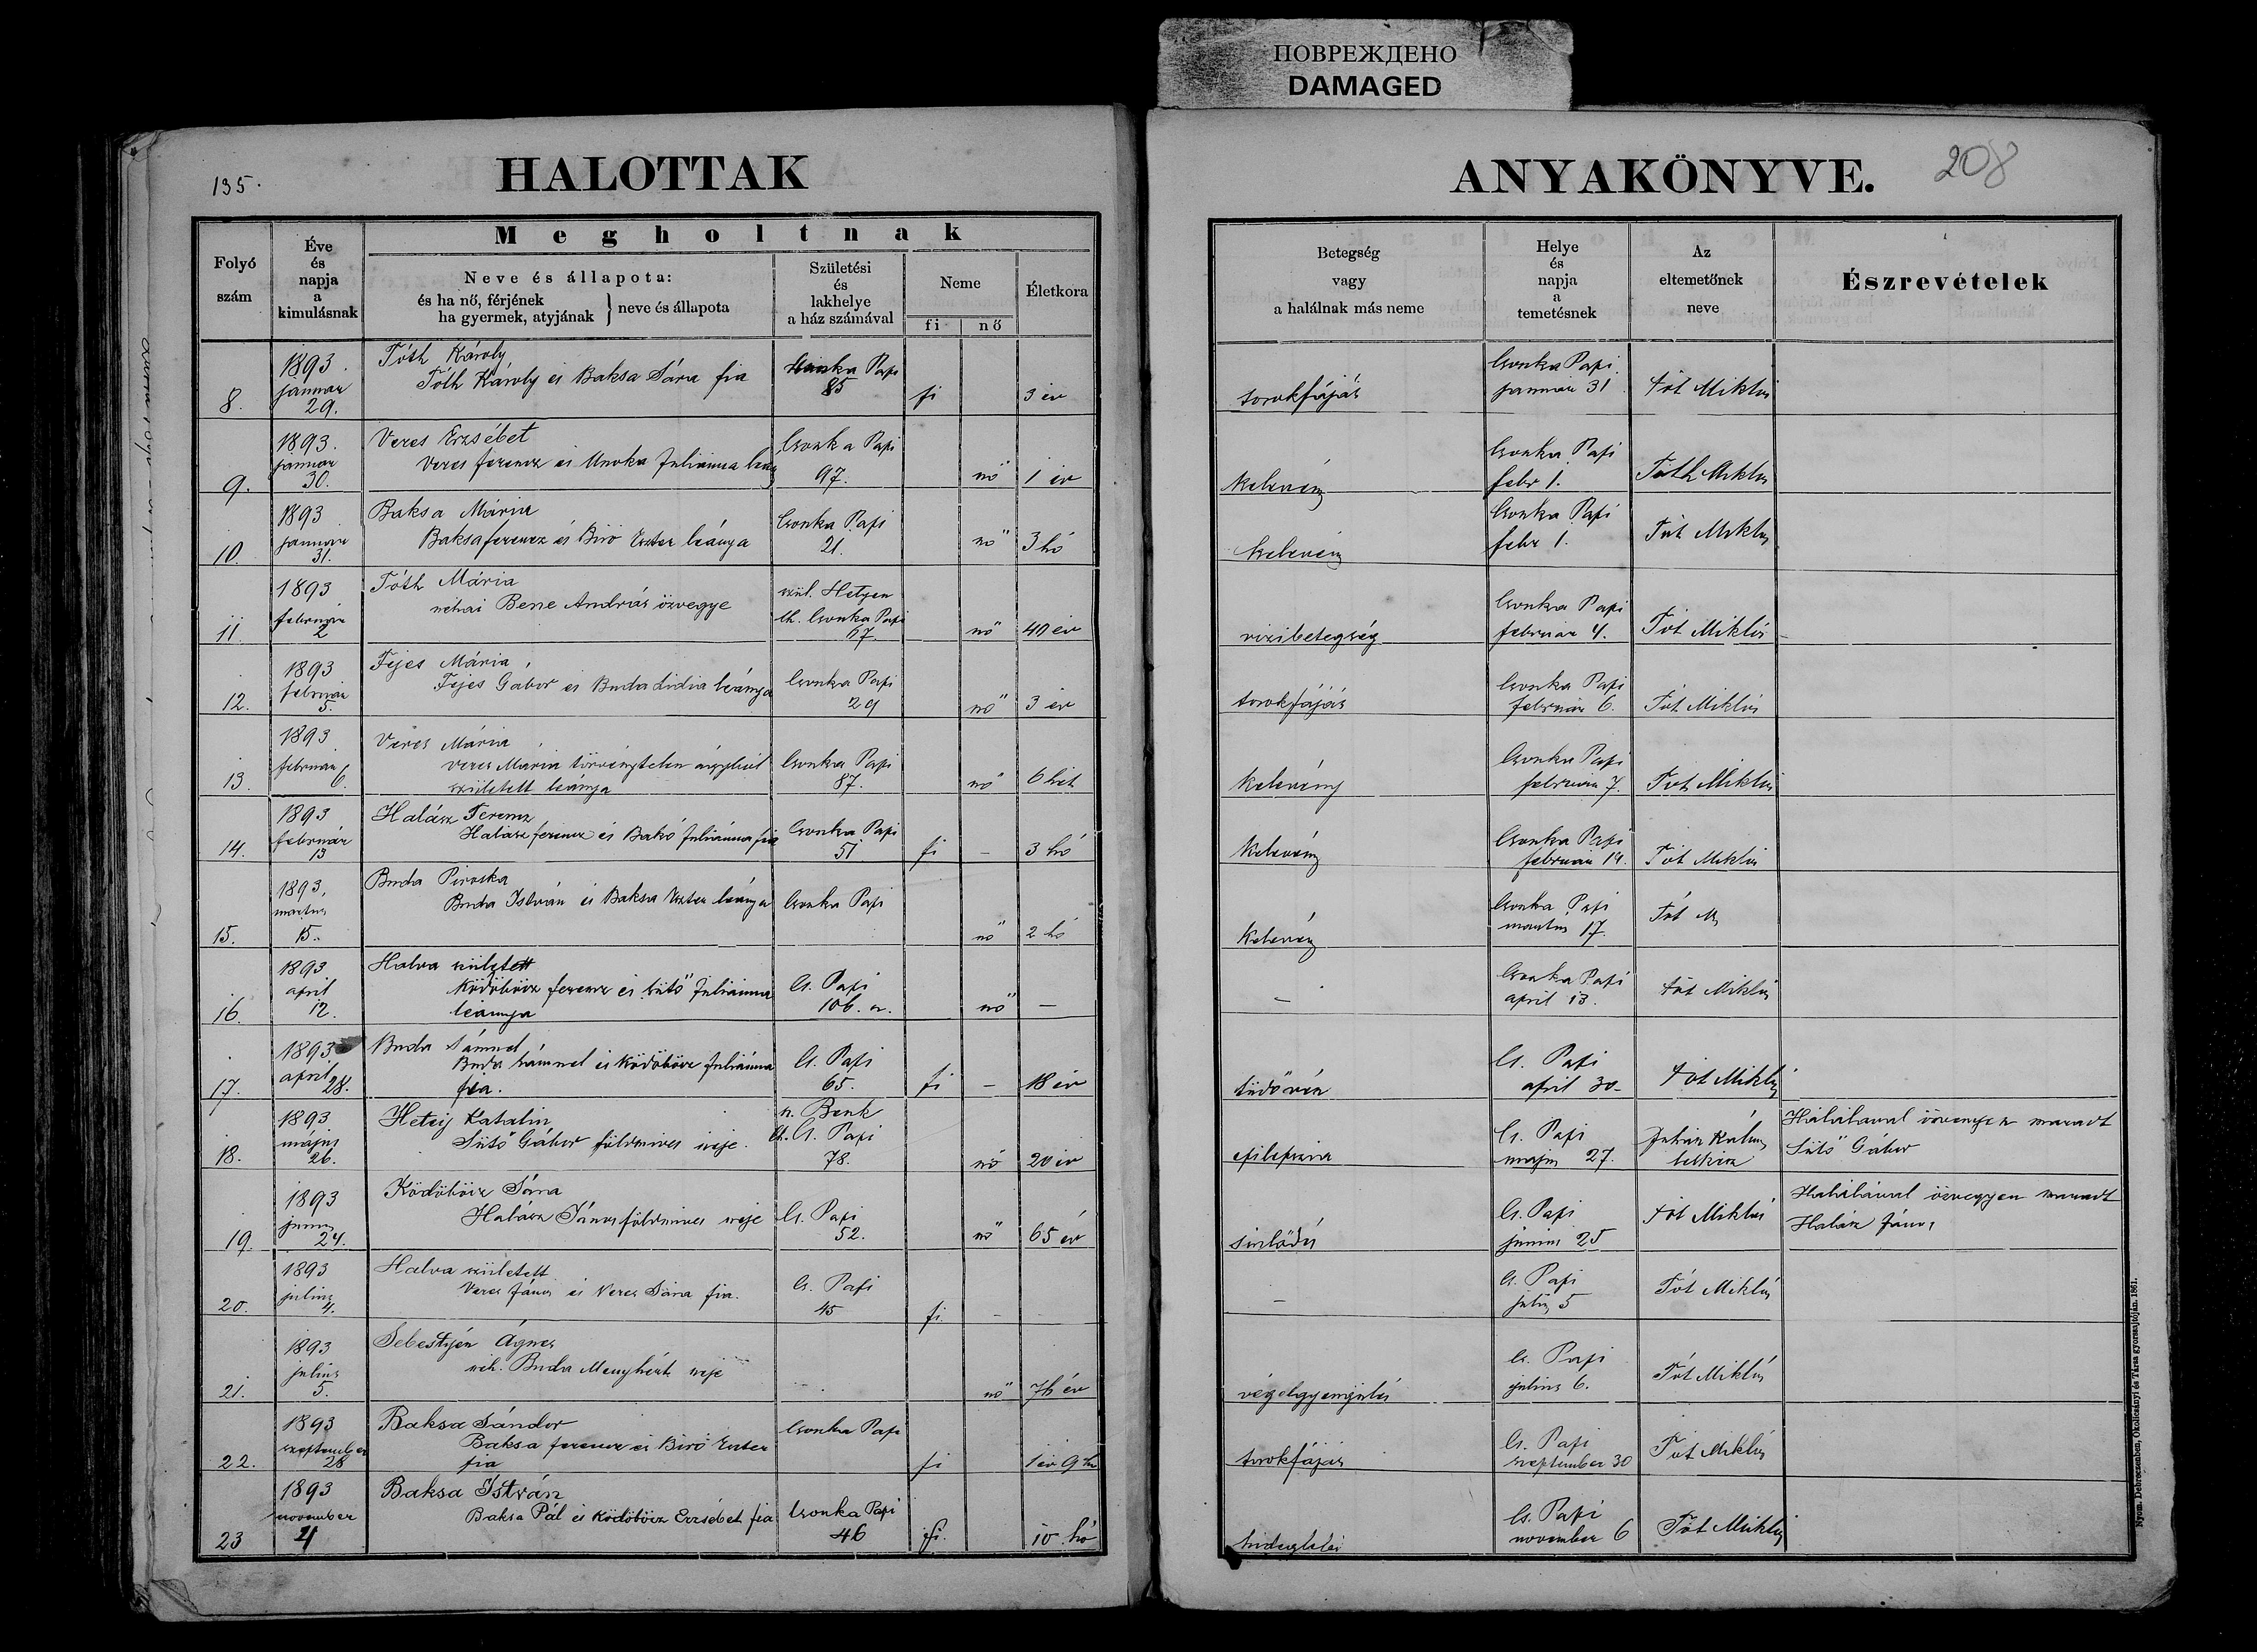 ПОВРЕЖДЕНО
DAMAGED
135.
HALOTTAK
ANYAKÖNYVE.
208
Folyó
szám
Éve
és
napja
a
kimulásnak
Megholtnak
Neve és állapota:
és ha nő, férjének
ha gyermek, atyjának } neve és állapota
Születési
és
lakhelye
a ház számával
Neme
fi nő
Életkora
Betegség
vagy
a halálnak más neme
Helye
és
napja
a
temetésnek
Az
eltemetőnek
neve
Észrevételek
8. 1893. januar 29.
Tóth Károly
Tóth Károly és Baksa Sára fia
Papi 85 fi 3 év
torokfájás
Csonka Papi. januar 31 Tót Miklós
9. 1893. januar 30.
Veres Erzsébet
Veres ferencz és Unoka Juliánna
Csonka Papi 97. nő 1 év
kelevény
Csonka Papi febr 1. Tóth Miklós
10. 1893 januar 31.
Baksa Mária
Baksa ferencz és Biró Eszter leánya
Csonka Papi 21. nő 3 hó
kelevény
Csonka Papi febr 1. Tót Miklós
11. 1893 február 2
Tóth Mária
néhai Bene András özvegye
szül. Hetyen
lh. Csonka Papi 67 nő 40 év
vizibetegség
Csonka Papi február 4. Tót Miklós
12. 1893 február 5.
Fejes Mária
Fejes Gábor és Buda Lidia leánya
Csonka Papi 29 nő 3 év
torokfájás
Csonka Papi február 6. Tót Miklós
13. 1893 február 6.
Veres Mária
Veres Mária törvénytelen ágyból
született leánya
Csonka Papi 87. nő 6 hét
kelevény
Csonka Papi február 7. Tót Miklós
14. 1893 február 13
Halász Ferencz
Halász ferencz és Bakó Juliánna fia
Csonka Papi 51 fi – 3 hó
kelevény
Csonka Papi február 14. Tót Miklós
15. 1893. martius 15.
Buda Piroska
Buda István és Baksa Eszter leánya
Csonka Papi nő 2 hó
kelevény
Csonka Papi martius 17. Tót M
16. 1893 april 12.
Halva született
Ködöböcz ferencz és Sütő Juliánna
leánya
Cs. Papi 106. nő –
–
Csonka Papi april 13. Tót Miklós
17. 1893 april 28.
Buda Sámuel
Buda Sámuel és Ködöböcz Juliánna
fia.
Cs. Papi 65. fi – 18 év
tüdővész
Cs. Papi april 30– Tót Miklós
18. 1893 május 26.
Hetey Katalin
Sütő Gábor földmives neje.
Benk
lh. Cs. Papi 78. nő 20 év
epilepszia
Cs. Papi május 27.
Juhász Kálmán
lelkész
Halálával özvegyen maradt
Sütő Gábor
19. 1893 junius 24.
Ködöböcz Sára
Halász János földmives neje
Cs. Papi 52. nő 65 év
Cs. Papi junius 25 Tót Miklós
Halálával özvegyen maradt
Halász János
20. 1893 julius 4.
Halva született
Veres János és Veres Sára fia.
Cs. Papi 45 fi –
–
Cs. Papi julius 5 Tót Miklós
21. 1893 julius 5.
Sebestyén Ágnes
néh. Buda Menyhért neje
nő 76 év
végelgyengülés
Cs. Papi julius 6. Tót Miklós
22. 1893 szeptember 28
Baksa Sándor
Baksa ferencz és Biró Eszter
fia
Csonka Papi fi 1 év 9 hó
torokfájás
Cs. Papi szeptember 30 Tót Miklós
23 1893 november 4
Baksa István
Baksa Pál és Ködöböcz Erzsébet fia
Csonka Papi 46 fi. 10 hó
hideglelés
Cs. Papi november 6 Tót Miklós
Nyom. Debreczenben, Okolicsányi és Társa gyorssajtóján. 1861.